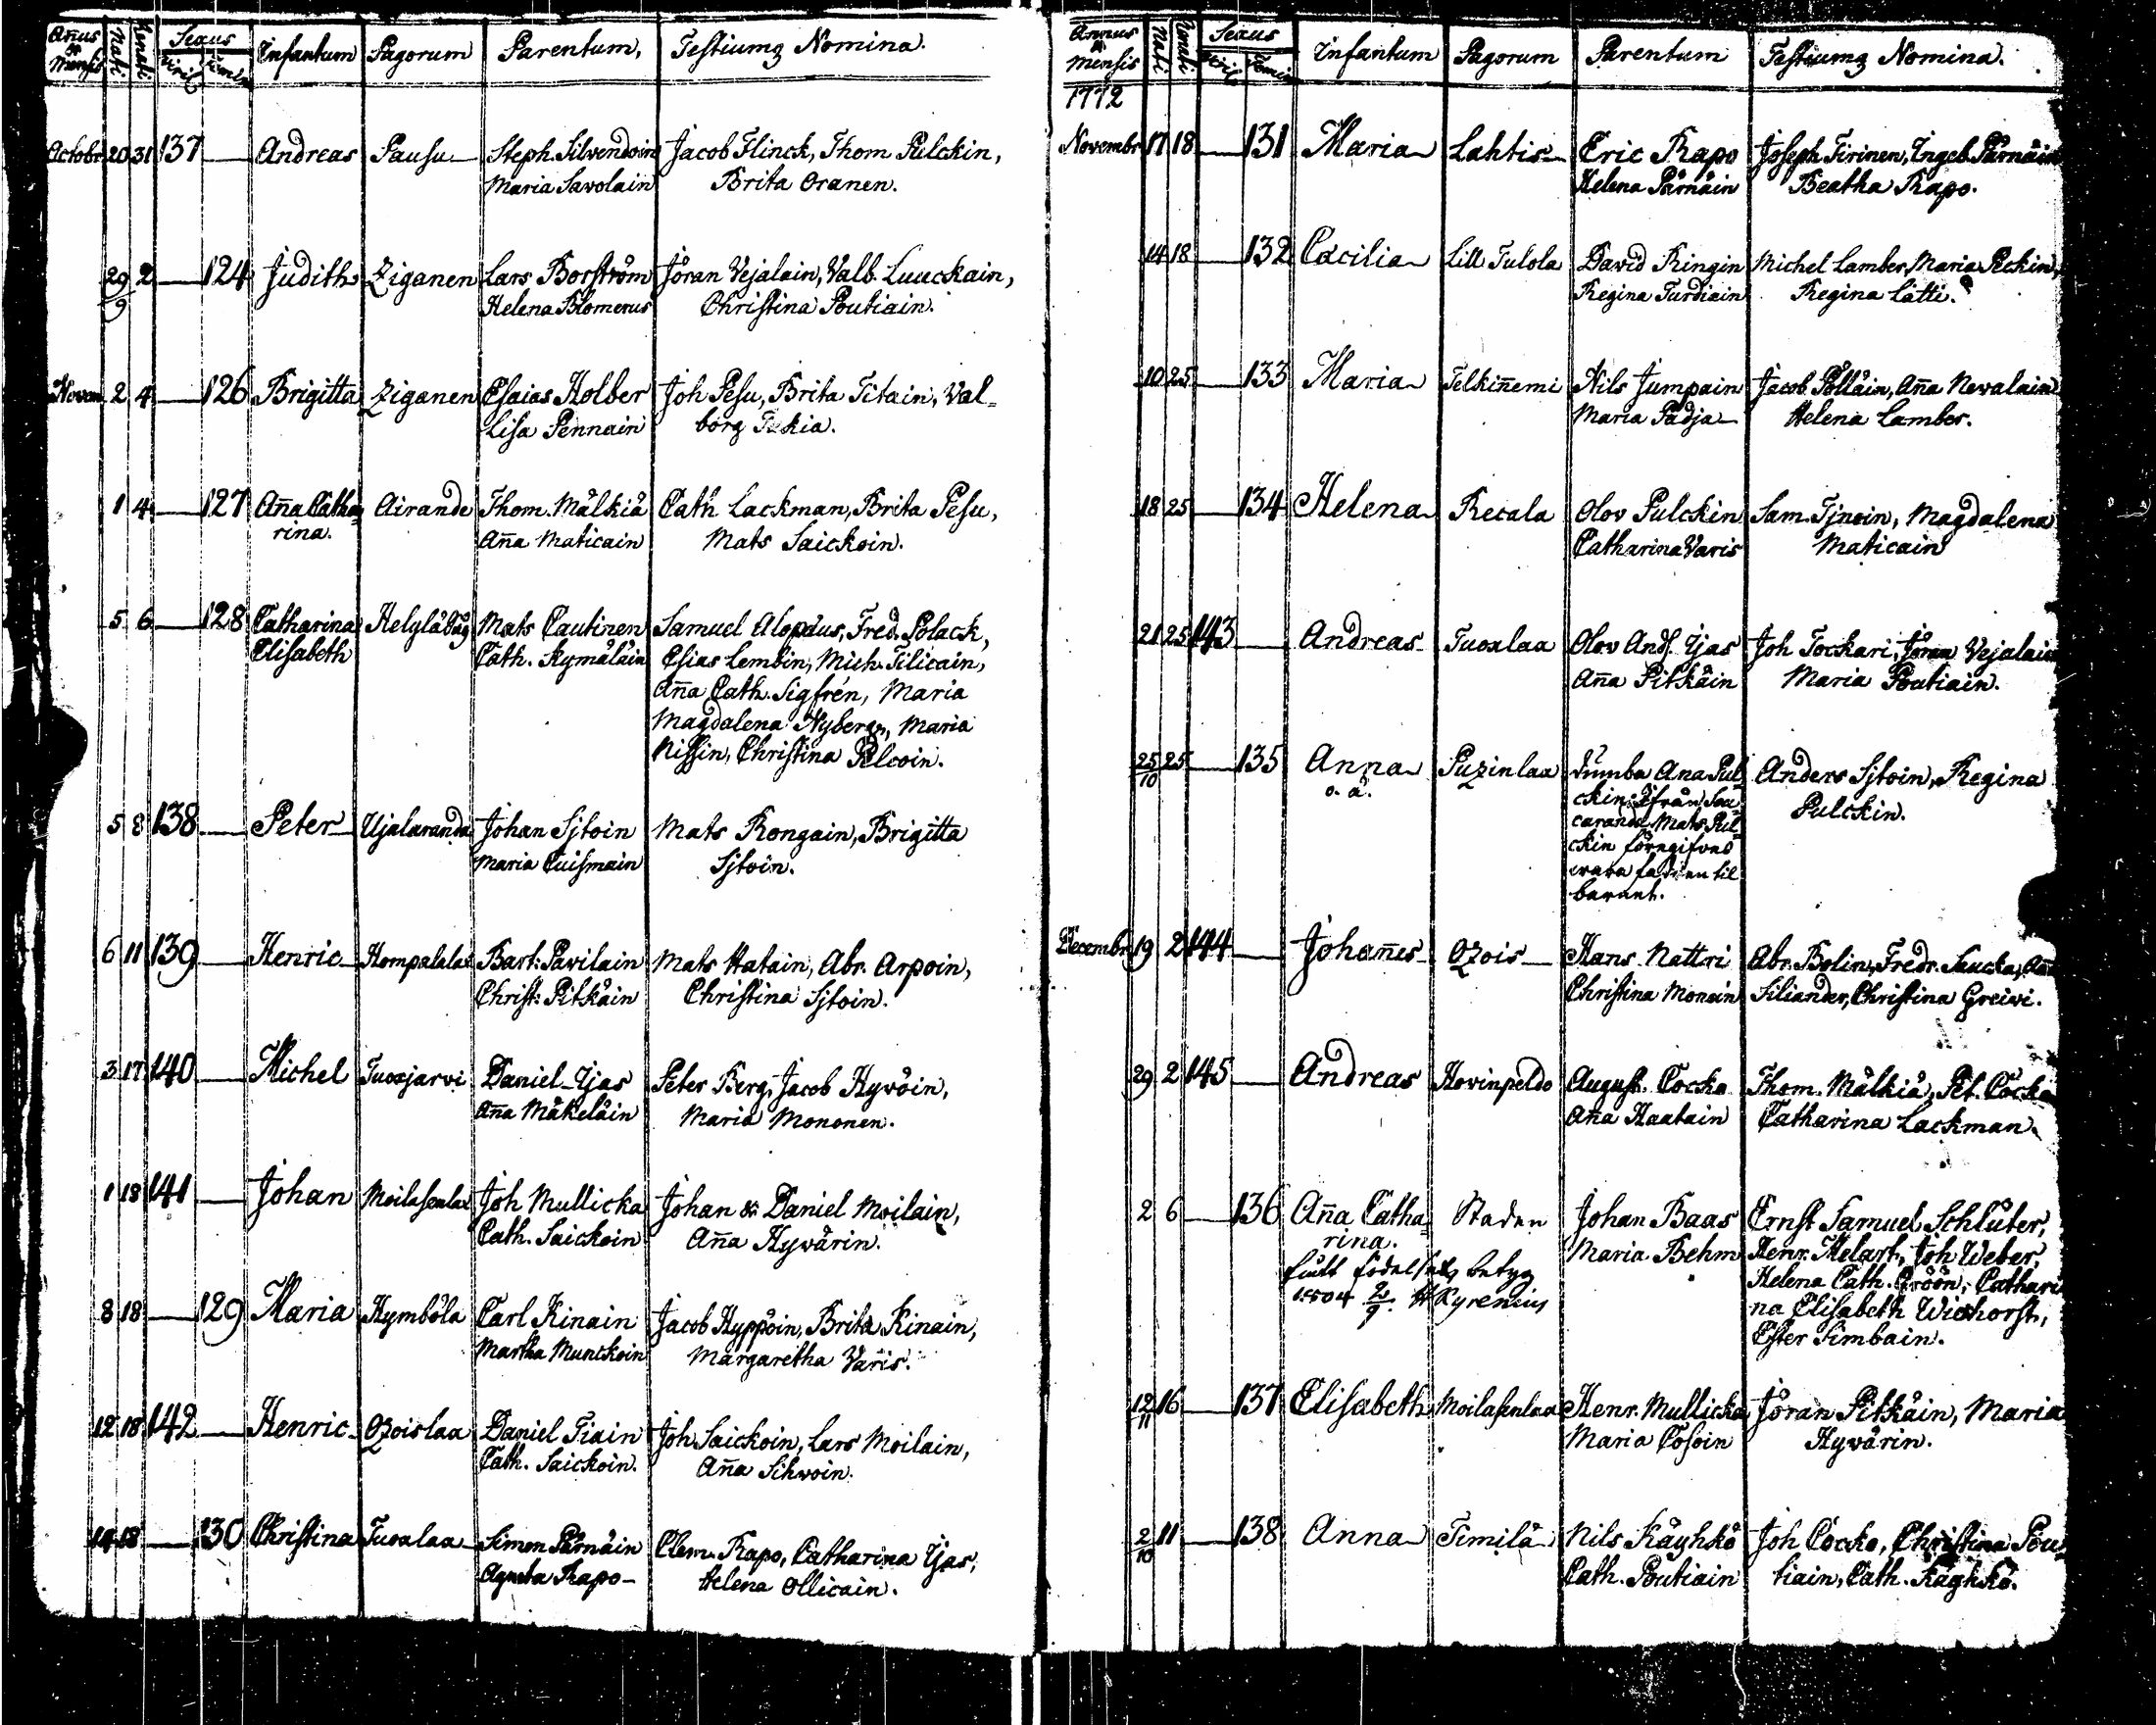 Añus & Mensis Nati Renati Sexus Viril Femin Infantum Pagorum Parentum, Testiumq Nomina.
Octobr 20 31 137 — Andreas Pausu Steph. Silvendoin Jacob Flinck, Thom Pulckin,
Maria Savolain Brita Oranen.
29/9 2 — 124 Judith Ziganen Lars Borström Jöran Vejalain, Valb. Luuckain,
Helena Blomerus Christina Poutiain.
Novem 2 4 — 126 Brigitta Ziganen Esaias Holber Joh Pesu, Brita Titain, Val-
Lisa Pennain borg Tukia.
1 4 — 127 Aña Catha- Airande Thom. Mälkiä Cath Lackman, Brita Pesu,
rina. Aña Maticain Mats Saickoin.
5 6 — 128 Catharina Helylä Mats Cautinen Samuel Alopæus, Fred. Polack,
Elisabeth Cath. Kymäläin Esias Lembin, Mich. Tilicain,
Aña Cath. Sigfrén, Maria
Magdalena Nyberg, Maria
Nissin, Christina Pelcoin.
5 8 138 — Peter Ujalaranda Johan Sjtoin Mats Rongain, Brigitta
Maria Cuismain Sjtoin.
6 11 139 — Henric Hompalalax Bart: Pavilain Mats Hatain, Abr. Arpoin,
Christ: Pitkäin Christina Sjtoin.
3 17 140 — Michel Tuoxjarvi Daniel Ijas Peter Berg, Jacob Hyvöin,
Aña Mäkeläin Maria Mononen.
1 18 141 — Johan Moilasenlax Joh Mullicka Johan & Daniel Moilain,
Cath. Saickoin Aña Hyvärin.
8 18 — 129 Maria Hymböla Carl Kinain Jacob Hyppöin, Brita Kinain,
Martha Munckoin Margaretha Varis.
12 18 142 — Henric Ozoislaa Daniel Tiain Joh Saickoin, Lars Moilain,
Cath. Saickoin. Aña Sihvoin.
14 18 — 130 Christina Tuoxlaa Simon Pärnäin Clem. Rapo, Catharina Ijas,
Agneta Rapo Helena Ollicain.
Annus & Mensis Nati Renati Sexus Viril Femin Infantum Pagorum Parentum Testiumq Nomina.
1772
Novembr 17 18 — 131 Maria Lahtis Eric Rapo Joseph Tirinen, Ingeb. Pärnäin
Helena Pärnäin Beatha Rapo.
14 18 — 132 Cæcilia Lill Tulola David Ringin Michel Lamber, Maria Peckin,
Regina Turdiain Regina Lätti.
10 25 — 133 Maria Telkiñemi Nils Jumpain Jacob Pölläin, Aña Nevalain
Maria Padja Helena Lamber.
18 25 — 134 Helena Recala Olov Pulckin Sam. Tjnoin, Magdalena
Catharina Varis Maticain
21 25 143 — Andreas Tuoxlaa Olov And. Ijas Joh Tockari, Jöran Vejalain
Aña Pitkäin Maria Poutiain.
25/10 25 — 135 Anna Puzinlaa dumba Ana Pul- Anders Sjtoin, Regina
o. ä. ckin ifrån Saa- Pulckin.
caranda Mats Pul-
ckin föregifves
wara fadren til
barnet.
Decembr 19 2 144 — Johañes Ozois Hans Nattri Abr. Bolin, Fredr. Saucka, Aña
Christina Monoin Siliander, Christina Greiwi.
29 2 145 — Andreas Hovinpeldo August. Cocko Thom. Mälkiä, Pet. Cocko
Aña Haatain Catharina Lackman.
2 6 — 136 Aña Catha- Staden Johan Baas Ernst Samuel Schlüter,
rina. Maria Behm Henr. Melart, Joh Weber,
fullt födelse betyg Helena Cath. Gröön, Cathari-
1804 2/9 Kyrenius na Elisabeth Wichorst,
Ester Simbain.
12/11 16 — 137 Elisabeth Moilasenlaa Henr. Mullicka Jöran Pitkäin, Maria
Maria Cosoin Hyvärin.
2/10 11 — 138 Anna Timilä Nils Käyhkö Joh Cocko, Christina Pou-
Cath. Poutiain tiain, Cath. Käyhkö.